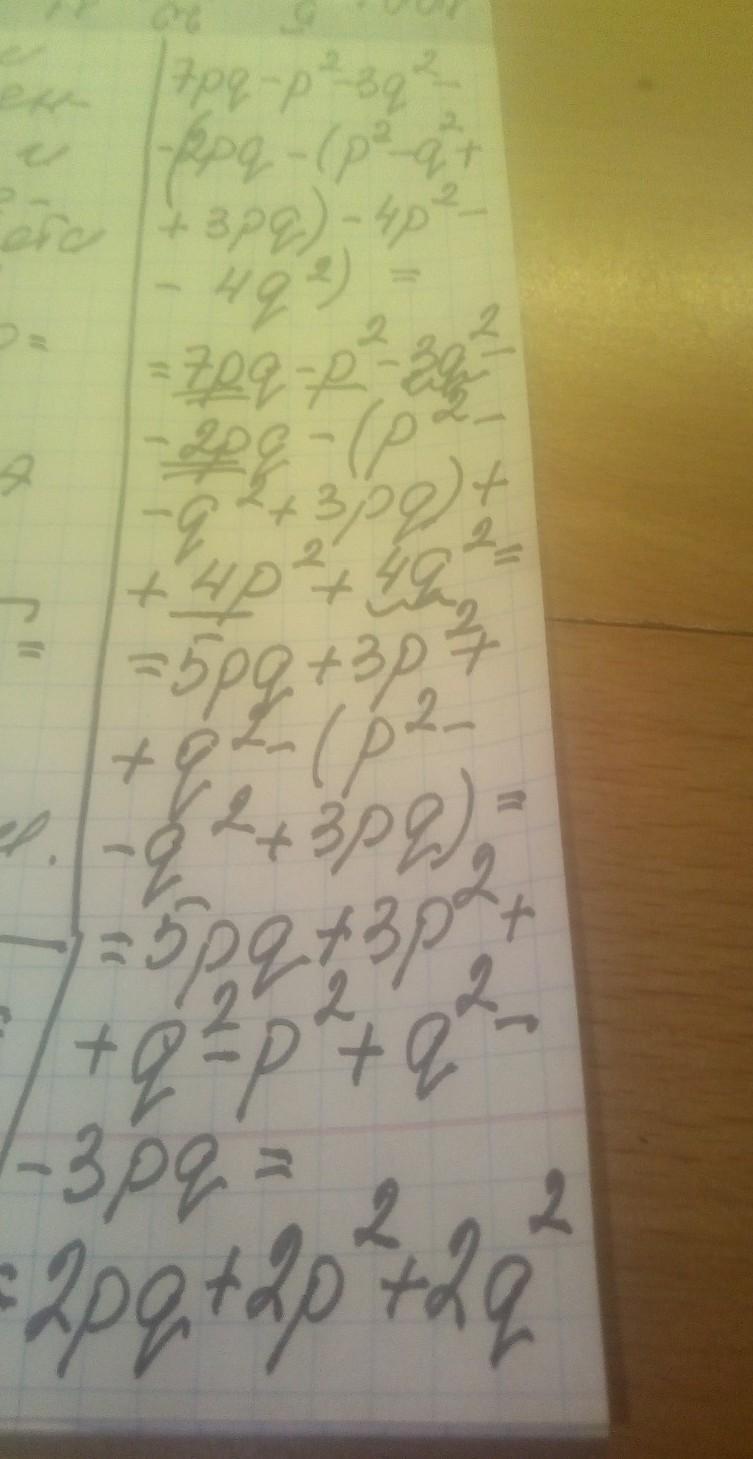 7pq - p² - 3q² -
- (2pq - (p² - q² +
+ 3pq) - 4p² -
- 4q²) =
= 7pq - p² - 3q² -
- 2pq - (p² -
- q² + 3pq) +
+ 4p² + 4q² =
= 5pq + 3p² +
+ q² - (p² -
- q² + 3pq) =
= 5pq + 3p² +
+ q² - p² + q² -
- 3pq =
= 2pq + 2p² + 2q²